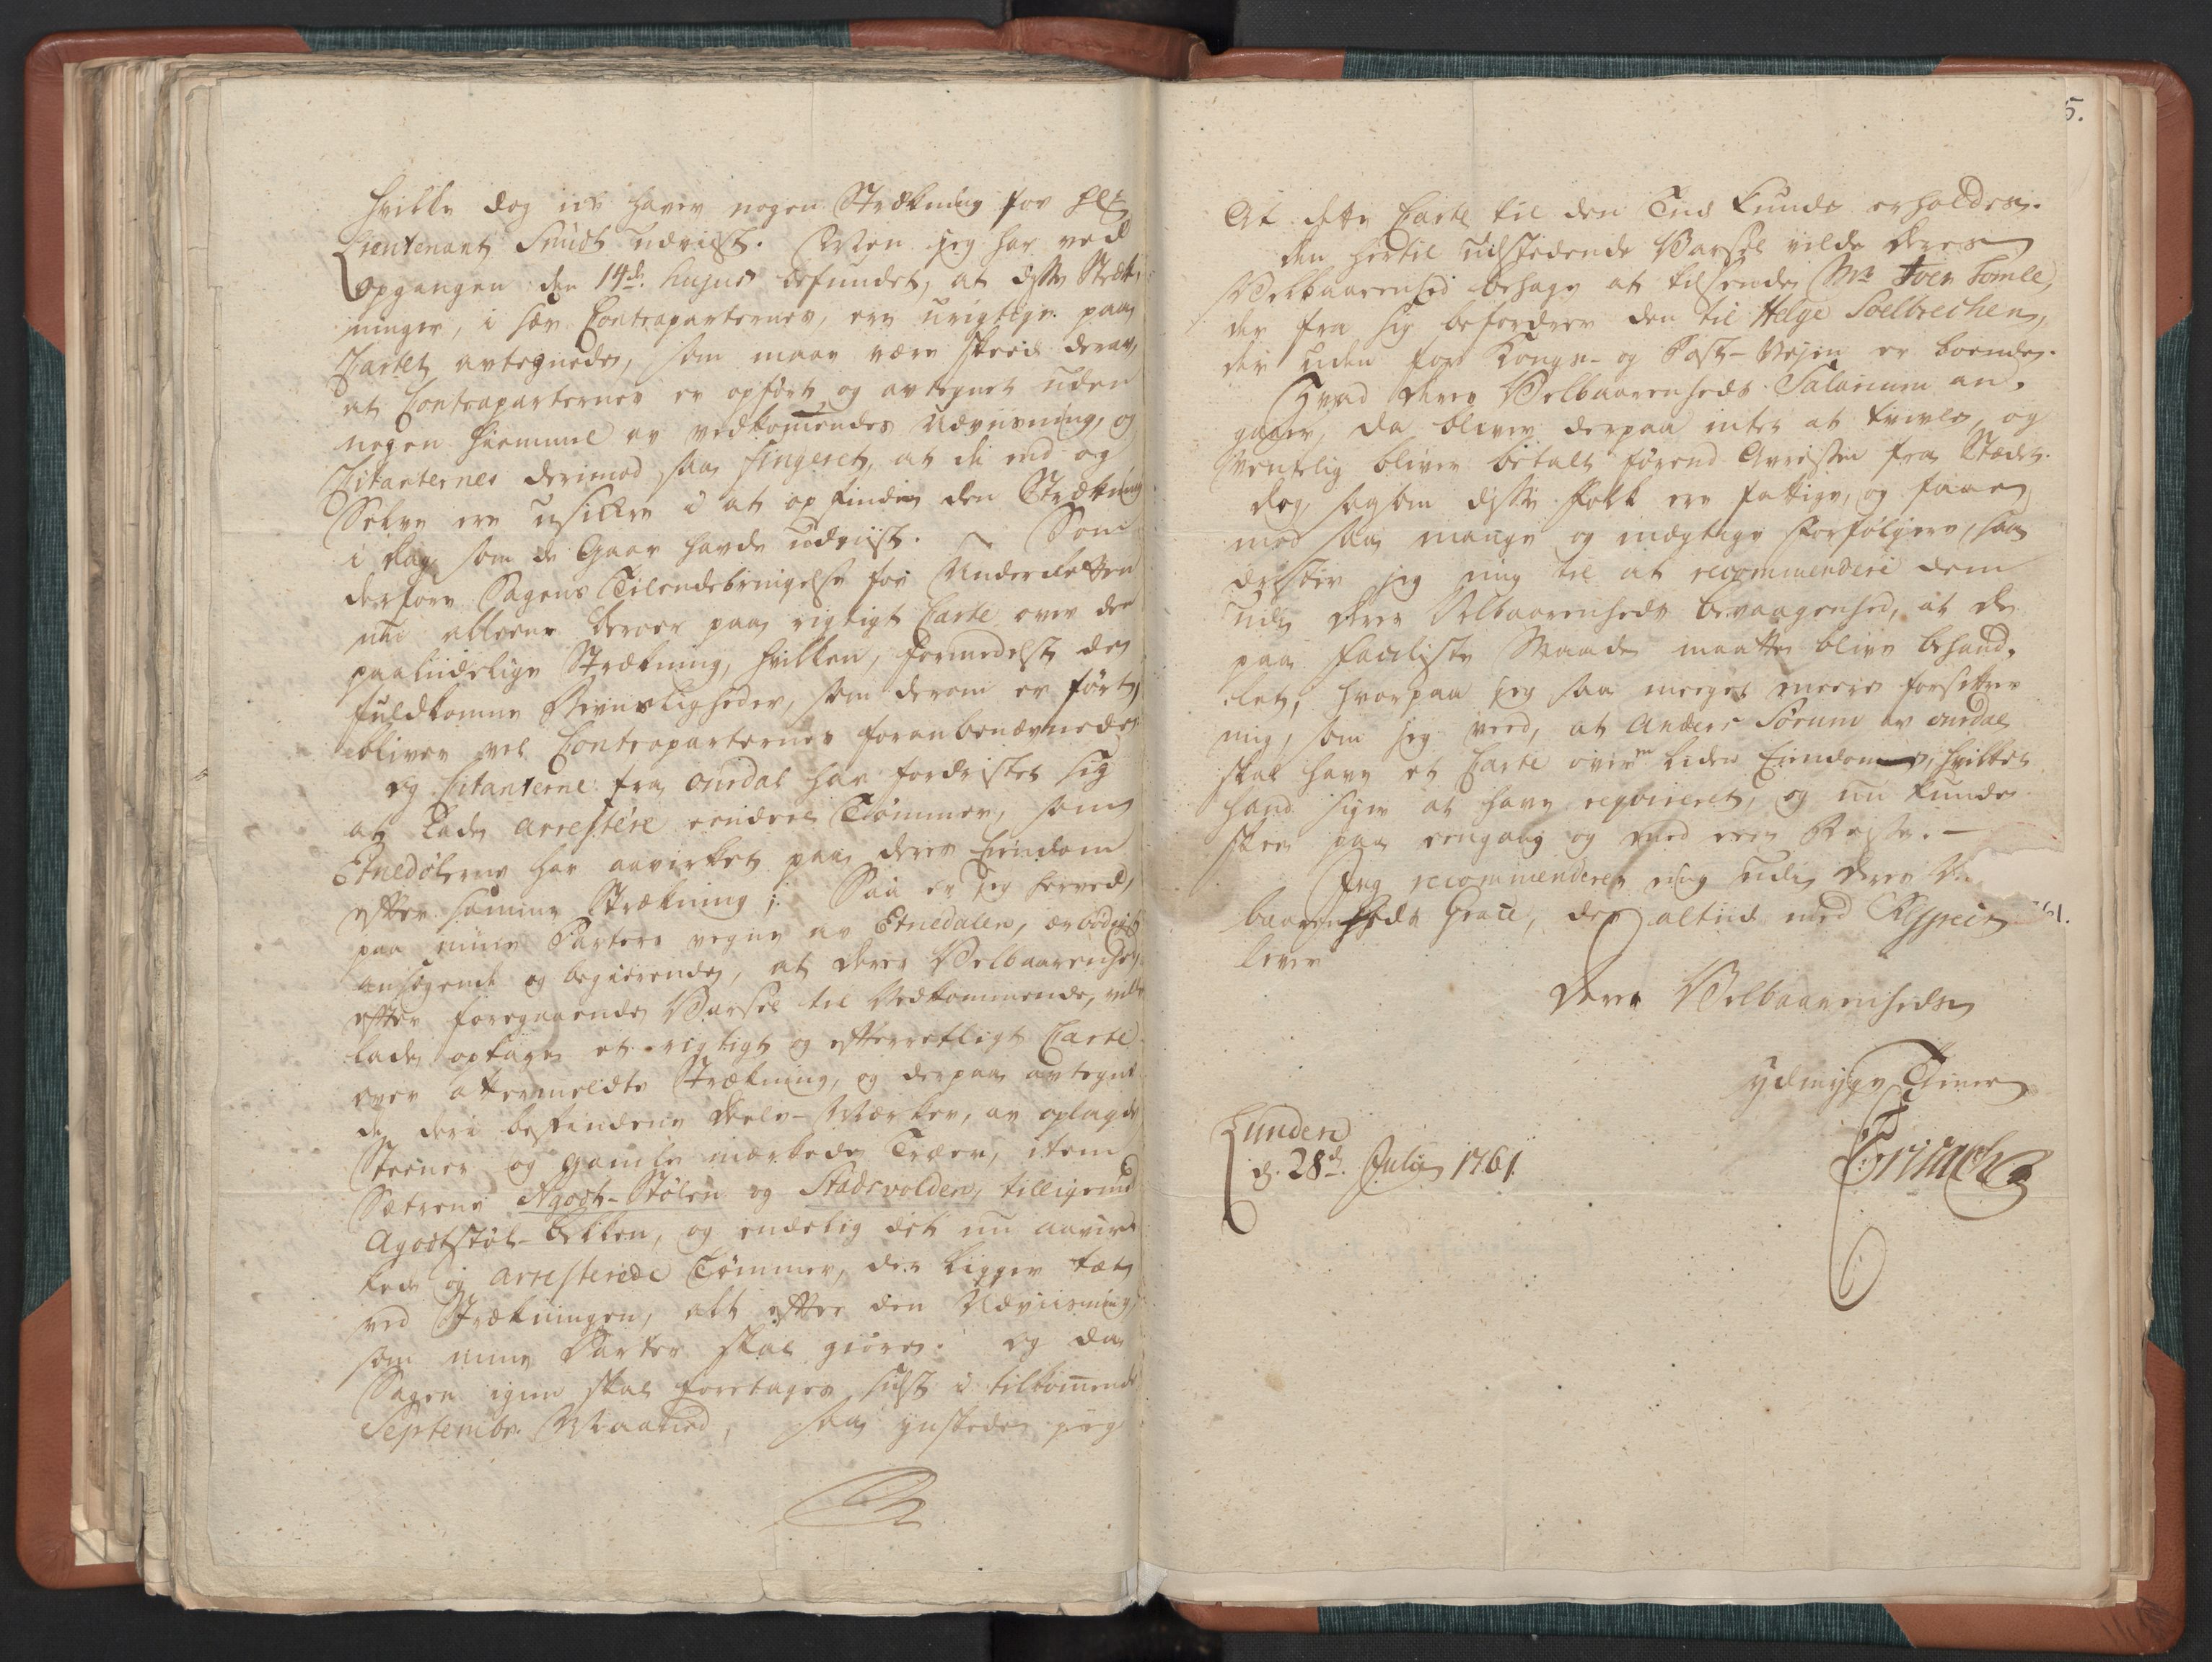 hvilke dog iche haver nogen Strækning for Hr
Lieutenant Smidt udviist. Men jeg har ved
opgangen den 14de hujus befundet, at disse Stræk-
ninger, i sær Contraparternes, ere urigtige paa
Cartet antegnede, som maae være skeed derav,
at Contraparternes er opført og antegnet uden
nogen Hiemmel av vedkommendes Udviisning, og
Citanternes derimod saa fingeret, at de end og
Selve ere usikkre i at opfinde den Strækning
i Dag, som de Gaar havde udviist. Som
derfore Sagens Tilendebringelse for Underretten
nu alleene beroer paa rigtigt Carte over den
paalidelige Strækning, hvilken, formedelst de
fuldkomne Beviisligheder, som derom er ført,
bliver vel Contraparternes foranbenævnede
og Citanterne fra Ourdal har fordristet sig
at lade arrestere eendeel Tømmer, som
Etnedølerne har aavirket paa deres Eiendom
efter samme Strækning; Saa er jeg herved,
paa mine Parters vegne av Etnedalen, ærbødigst
ansøgende og begierende, at Deres Velbaarenhed,
efter foregaaende Varsel til Vedkommende, ville
lade optage et rigtigt og efterretligt Carte
over ommeldte Strækning, og derpaa antegne
de deri befindene Deele-Mærker, av oplagde
Steener og gamle mærkede Træer, item
Sætrene Agodt-Stølen og Stadsvolden, tilligemed
Agodtstøl-bekken, og endelig det nu aavir-
kede og arresterede Tømmer, der ligger tæt
ved Strækningen, alt efter den Udviisning,
som mine Parter skal giøre. Og da
Sagen igien skal foretages sidst i tilkommende
September Maaned, saa ynskede jeg
5.
At dette Carte til den Tid kunde erholdes.
Den hertil udstedende Varsel vilde Deres
Velbaarenhed behage at tilsende Mr Iver Tomle,
der fra sig befordrer den til Helge Soelbrechen,
der uden for Konge- og Post-Vejen er boende.
Hvad Deres Velbaarenheds Salarium an-
gaaer, da bliver derpaa intet at tvivle, og
ventelig bliver betalt førend Avreisen fra Stædet.
Dog, saasom disse Folk ere fattige, og faae
mod saa mange og mægtige Forfølgere, saa
drister jeg mig til at recommendere dem
udi Deres Velbaarenheds bevaagenhed, at de
paa faciliste Maade maatte blive behand-
let, hvorpaa jeg saa meeget meere forsettrer
mig, som jeg veed, at Anders Sørum av Ourdal
skal have et Carte over en liden Eiendom, hvilket
hand siger at have reqvireret, og nu kunde
skee paa eengang og med een Reise. –
Jeg recommenderer mig udi Deres Vel
baarenheds Grace, der altiid med Respect
lever
61.
Deres Velbaarenheds
ydmyge Tiener
Lunden
d. 28de Julii 1761.